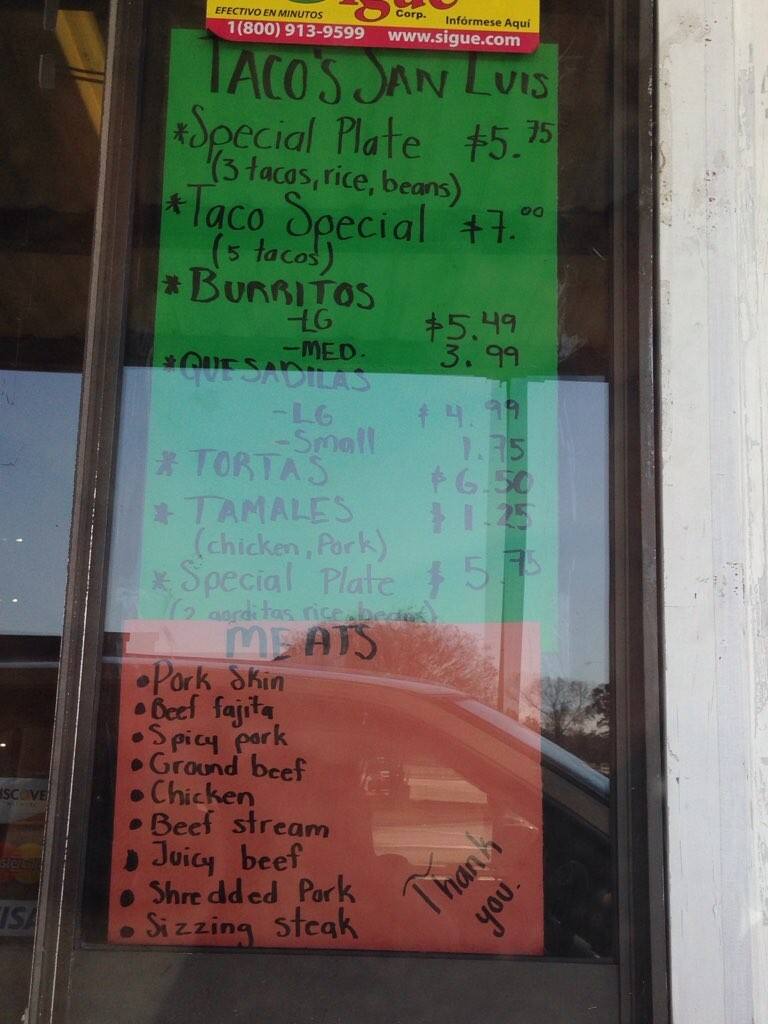 EFECTIVO EN MINUTOS
Sigue
Corp.
Infórmese Aquí
1(800) 913-9599 www.sigue.com
TACO'S SAN LUIS
*Special Plate $5.75
(3 tacos, rice, beans)
*Taco Special $7.00
(5 tacos)
*BURRITOS
-LG $5.49
-MED. 3.99
*QUESADILAS
-LG $4.99
-Small 1.75
* TORTAS $6.50
* TAMALES $1.25
(chicken, Pork)
* Special Plate $5.75
(2 gorditas rice, beans)
MEATS
• Pork Skin
• Beef fajita
• Spicy pork
• Ground beef
• Chicken
• Beef stream
• Juicy beef
• Shredded Pork
• Sizzing steak
Thank
you.